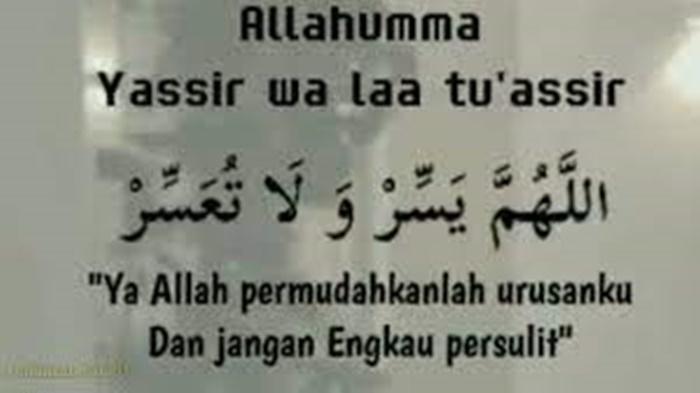 Allahumma
Yassir wa laa tu'assir
اللَّهُمَّ يَسِّرْ وَ لَا تُعَسِّرْ
"Ya Allah permudahkanlah urusanku
Dan jangan Engkau persulit"